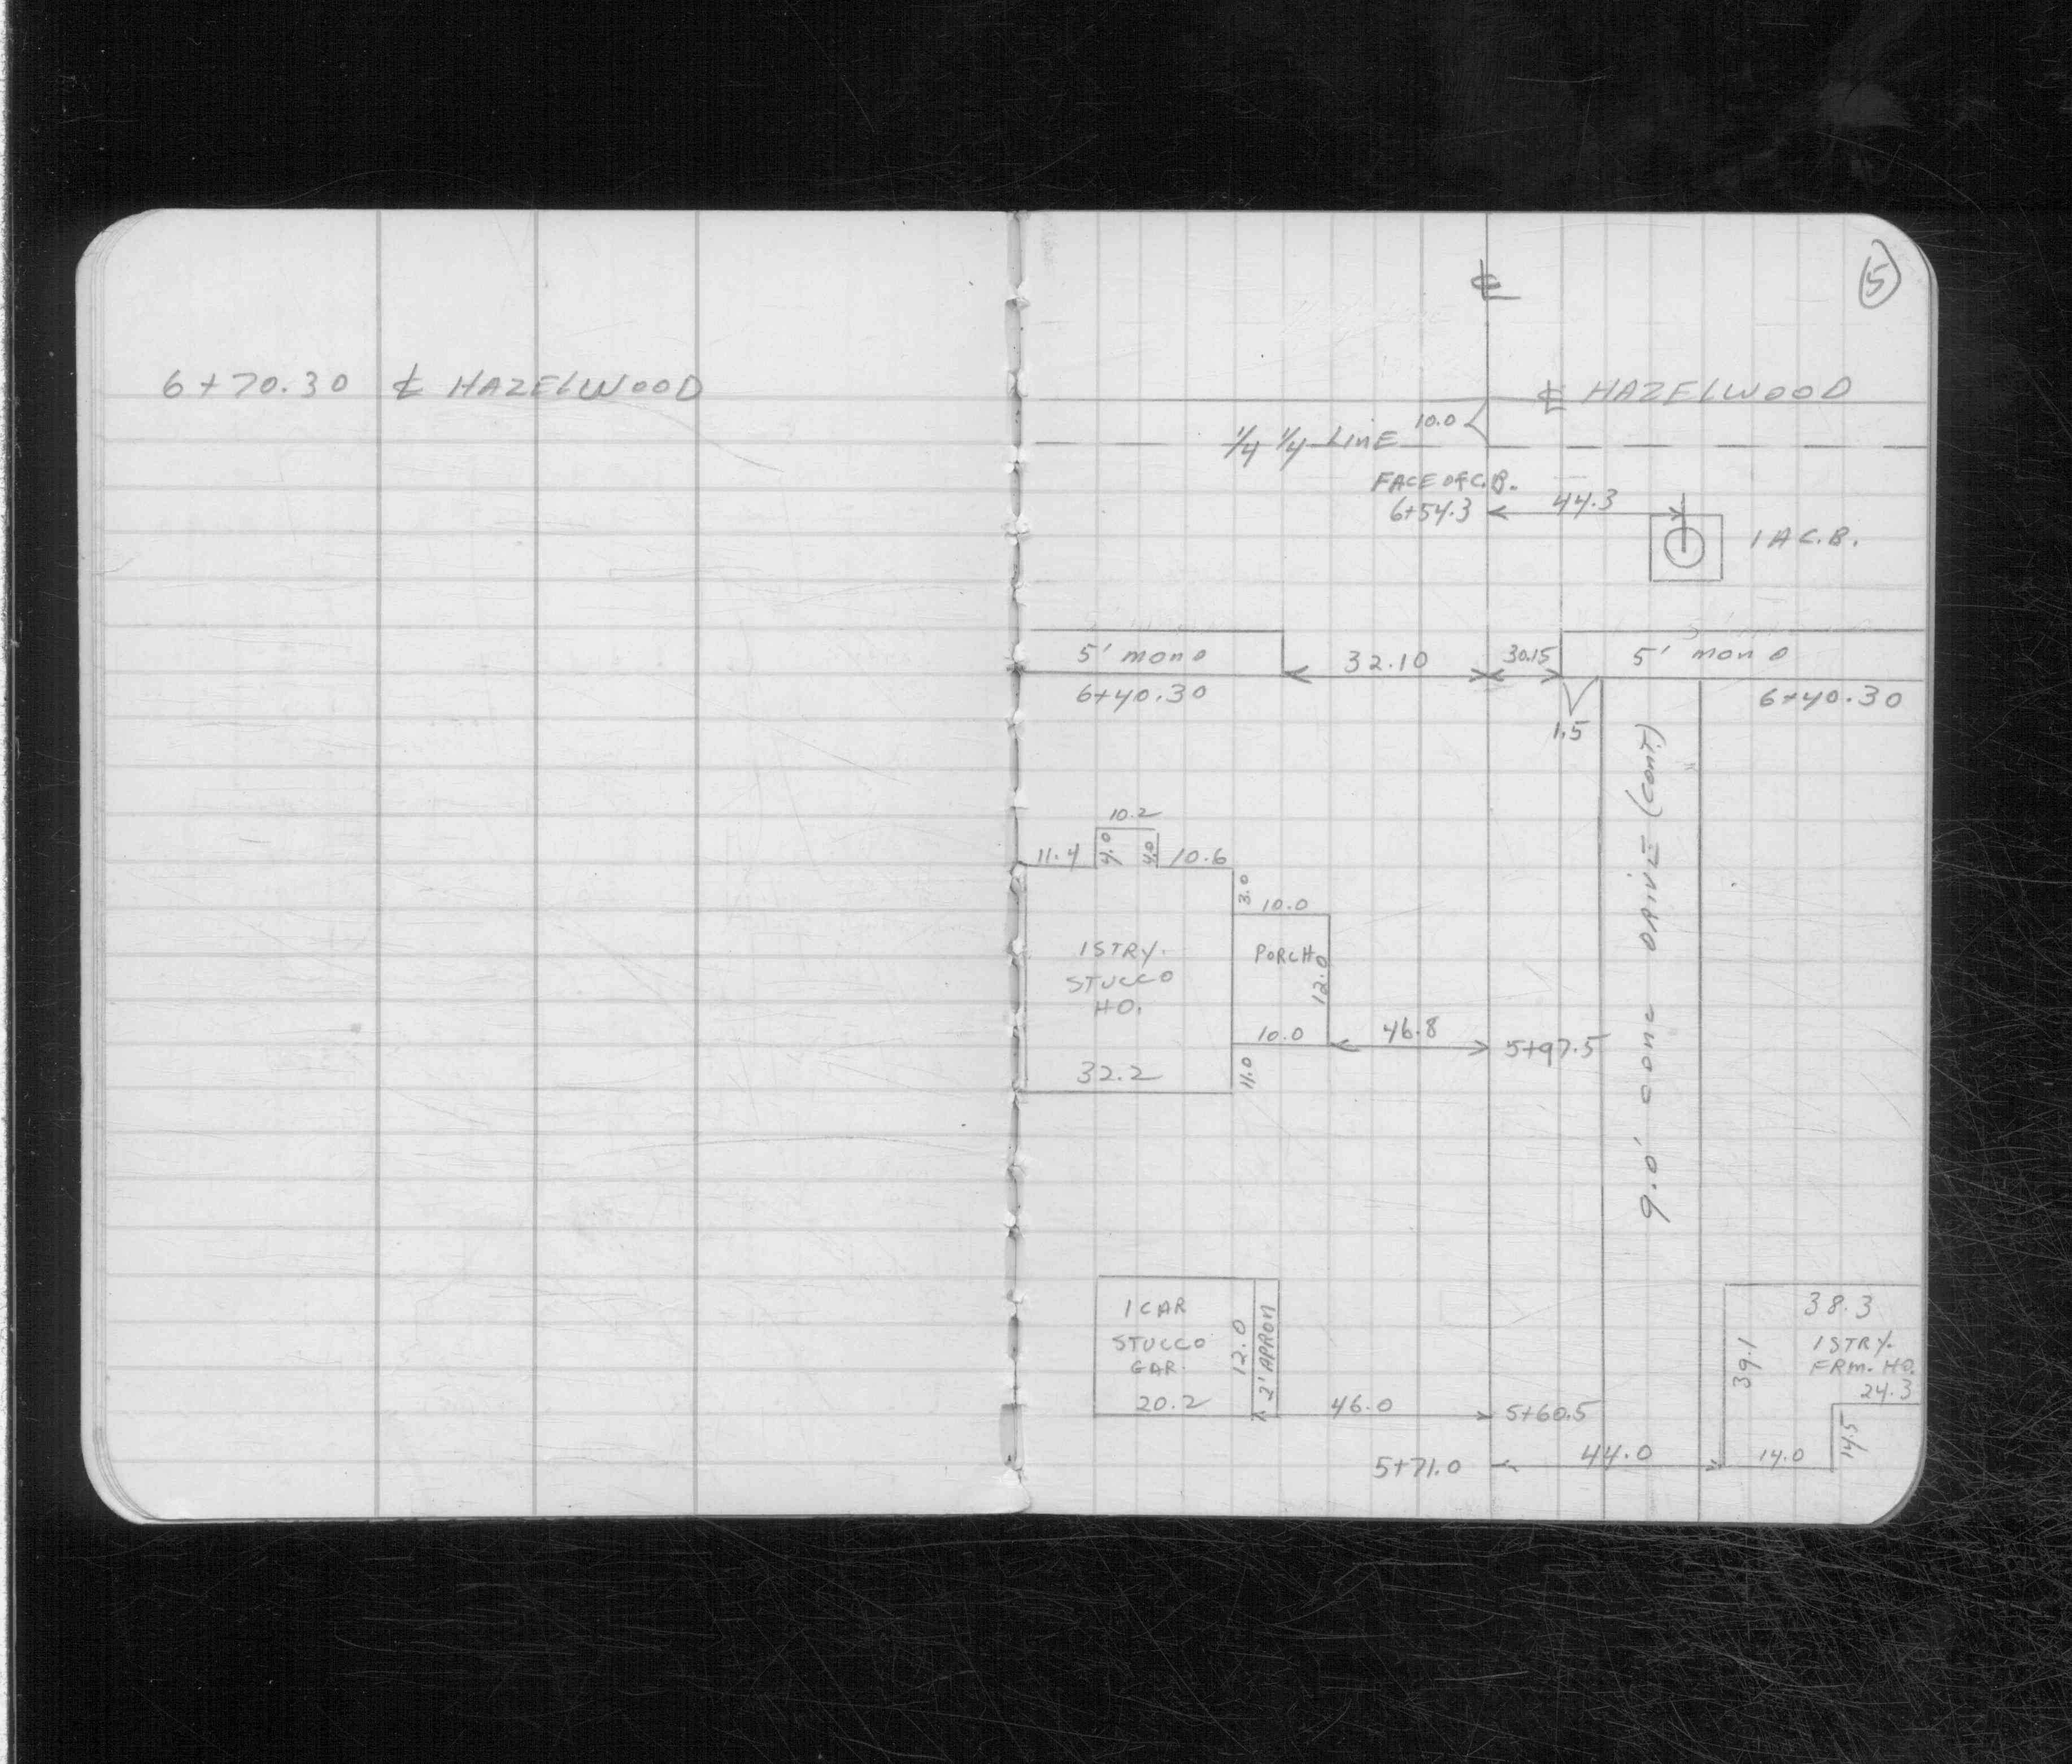 6+70.30 ℄ HAZELWOOD
5
℄
℄ HAZELWOOD
10.0
1/4 1/4 LINE
FACE OF C.B.
6+54.3
44.3
1 A C.B.
5' mono
32.10
30.15
5' mono
6+40.30
6+40.30
1.5
9.0' CONC DRIVE (CONT.)
10.2
11.4
4.0
4.0
10.6
3.0
10.0
1 STRY.
STUCCO
HO.
PORCH
12.0
10.0
46.8
5+97.5
32.2
11.0
1 CAR
STUCCO
GAR.
20.2
12.0
2' APRON
46.0
5+60.5
38.3
39.1
1 STRY.
FRM. HO.
24.3
14.5
5+71.0
44.0
14.0